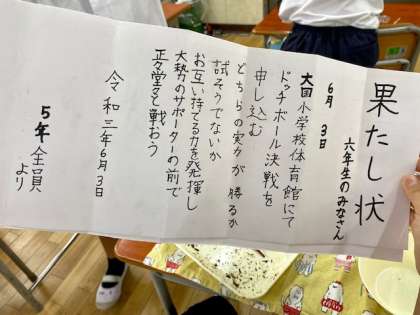 果たし状
六年生のみなさん
6月3日
大国小学校体育館にて
ドッチボール決戦を
申し込む
どちらの実力が勝るか
試そうでないか
お互い持てる力を発揮し
大勢のサポーターの前で
正々堂々と戦おう
令和三年6月3日
5年全員
より